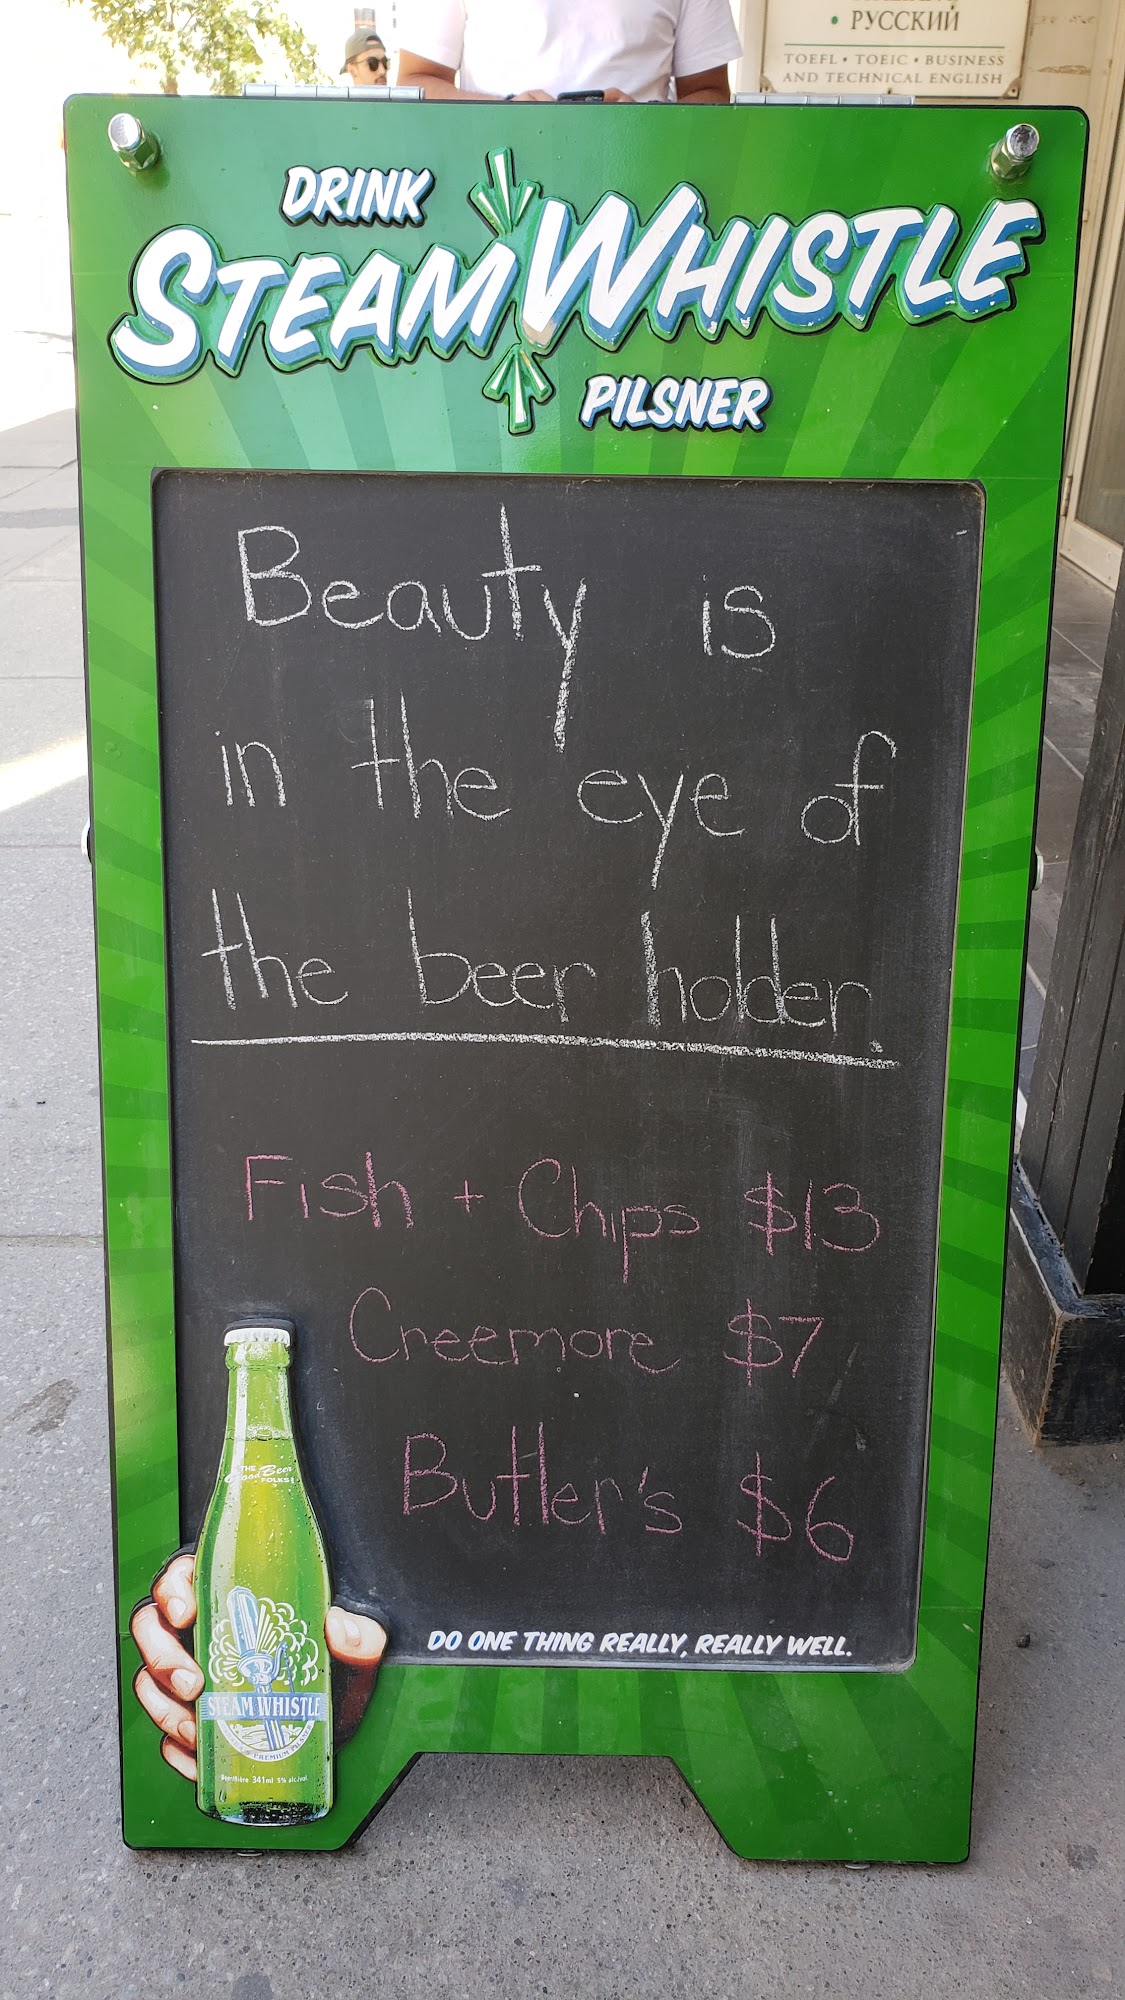 • РУССКИЙ
TOEFL • TOEIC • BUSINESS
AND TECHNICAL ENGLISH
DRINK
STEAM WHISTLE
PILSNER
Beauty is
in the eye of
the beer holder.
Fish + Chips $13
Creemore $7
Butler's $6
THE
Good Beer
FOLKS!
STEAM WHISTLE
PREMIUM PILSNER
Beer/Bière 341ml 5% alc./vol.
DO ONE THING REALLY, REALLY WELL.